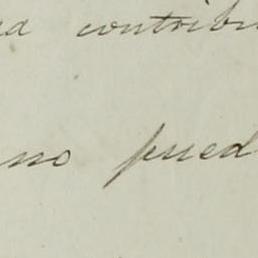 a contribu
no pued